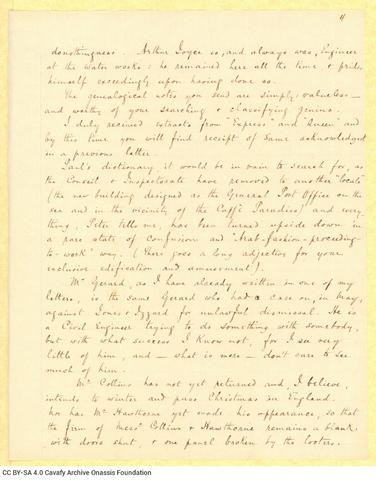 4
donothingness. Arthur Joyce is, and always was, Engineer
at the Water works: he remained here all the time & prides
himself exceedingly upon having done so.
The genealogical notes you send are simply valueless —
and worthy of your searching & classifying genius.
I duly received extracts from "Express" and "Queen" and
by this time you will find receipt of same acknowledged
in a previous letter.
Paul's dictionary it would be in vain to search for, as
the Conseil & Inspectorate have removed to another "locale"
(the new building designed as the General Post Office on the
sea and in the vicinity of the Caffè Paradiso) and every
thing, Peter tells me, has been turned upside down in
a rare state of confusion and "Arab-fashion-proceeding-
to-work" way. (There goes a long adjective for your
exclusive edification and amusement).
Mr Gerard, as I have already written in one of my
letters, is the same Gerard who had a case on, in May,
against Jones & Izzard for unlawful dismissal. He is
a Civil Engineer trying to do something with somebody,
but with what success I know not, for I see very
little of him, and — what is more — don't care to see
much of him.
Mr Collins has not yet returned and, I believe,
intends to winter and pass Christmas in England.
Nor has Mr Hawthorne yet made his appearance, so that
the firm of Messrs Collins & Hawthorne remains a blank
with doors shut, & one panel broken by the looters.
CC BY-SA 4.0 Cavafy Archive Onassis Foundation